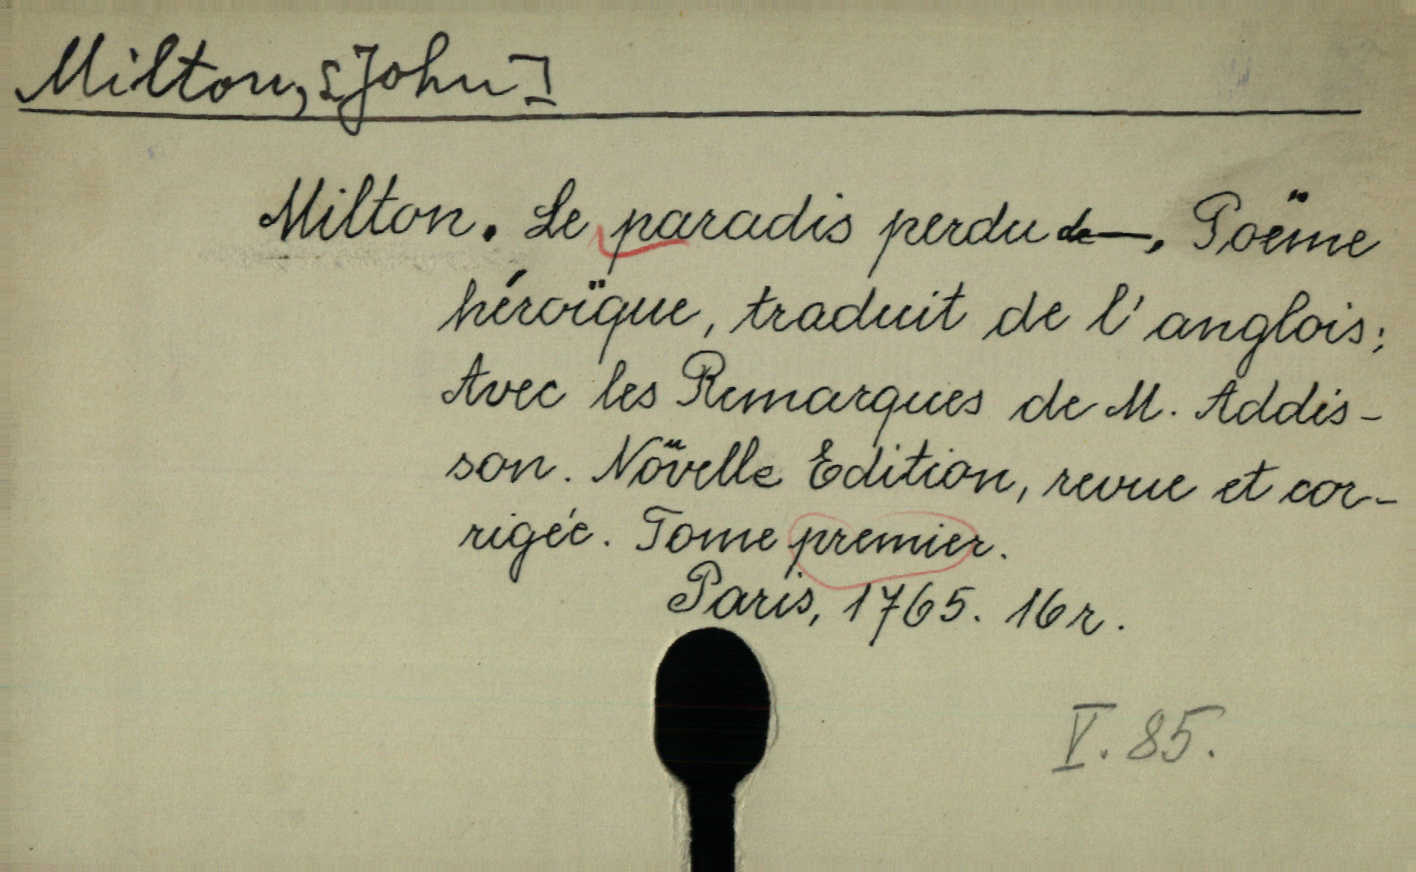 Milton, [John]
Milton. Le paradis perdu de —, Poëme
héroïque, traduit de l'anglois;
Avec les Remarques de M. Addis-
son. Növelle Edition, revue et cor-
rigée. Tome premier.
Paris, 1765. 16r.
V. 85.